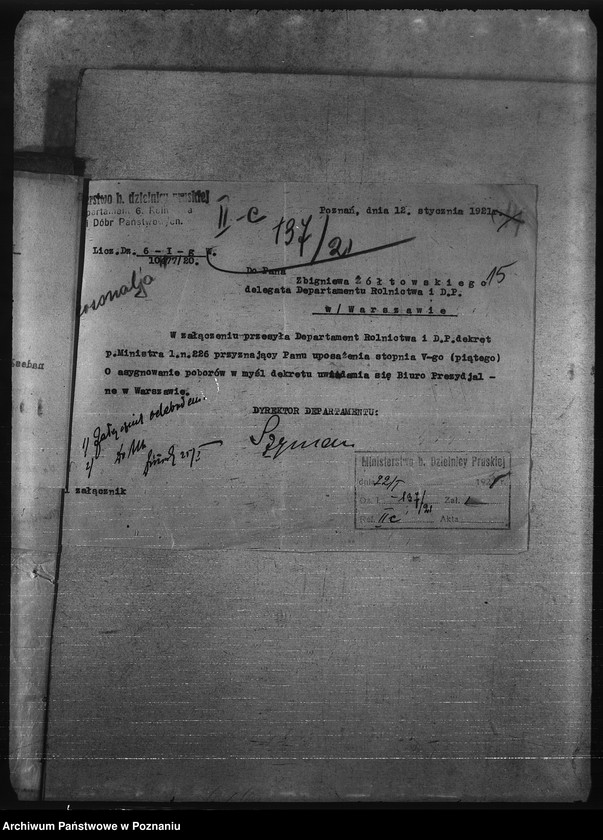 erstwo b. dzielnicy pruskiej
epartament 6. Rolni a
i Dóbr Państwowych.
II-c 137/21
Poznań, dnia 12. stycznia 1921r.
Licz.Dz. 6 - I - g W.
/20.
15
Do Pana
Zbigniewa Żółtowskiego
delegata Departamentu Rolnictwa i D.P.
w/Warszawie
W załączeniu przesyła Departament Rolnictwa i D.P. dekret
p.Ministra l.n.226 przyznający Panu uposażenia stopnia V-go (piątego)
O asygnowanie poborów w myśl dekretu uwiadamia się Biuro Prezydjal -
ne w Warszawie.
DYREKTOR DEPARTAMENTU:
1/ Załącznik odebrałem.
2/
Szyman
1 załącznik
Ministerstwo b. Dzielnicy Pruskiej
dnia 22/I 192
Dz. L. -137/21 Zał. 1
Ref. II c Akta
Archiwum Państwowe w Poznaniu